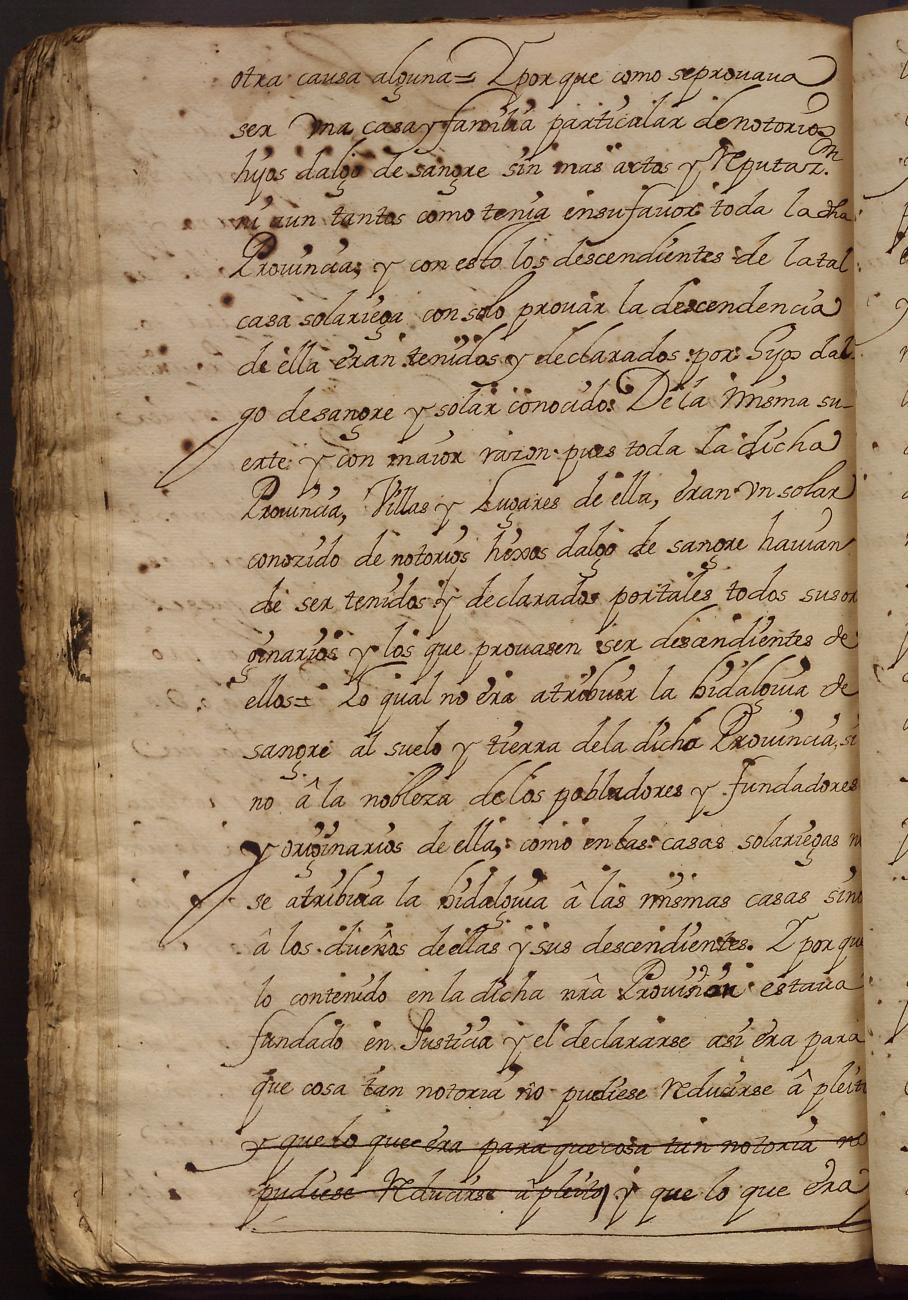 otra causa alguna = Y por que como se provava
ser Una casa y familia particular de notorios
hijos dalgo de sangre sin mas actos y Reputaz.on
ni aun tantos como tenia en su favor toda la dha
Provincia; y con esto los descendientes de la tal
casa solariega con solo provar la descendencia
de ella eran tenidos y declarados por hijos dal
go de sangre y solar conocido: De la misma su-
erte y con maior razon pues toda la dicha
Provincia, Villas y Lugares de ella, eran Vn solar
conozido de notorios hixos dalgo de sangre havian
de ser tenidos y declarados por tales todos sus or
ginarios y los que provasen ser descendientes de
ellos = Lo qual no era atribuir la hidalguia de
sangre al suelo y tierra de la dicha Provincia, si
no â la nobleza de los pobladores y fundadores
y originarios de ella, como en las casas solariegas no
se atribuia la hidalguia â las mismas casas sino
â los dueños de ellas y sus descendientes. Y por que
lo contenido en la dicha nrâ Provision estava
fundado en Justicia y el declararse asi era para
que cosa tan notoria no pudiese Reducirse â pleito
y que lo que era para que cosa tan notoria no
pudiese Reducirse â pleito, y que lo que era